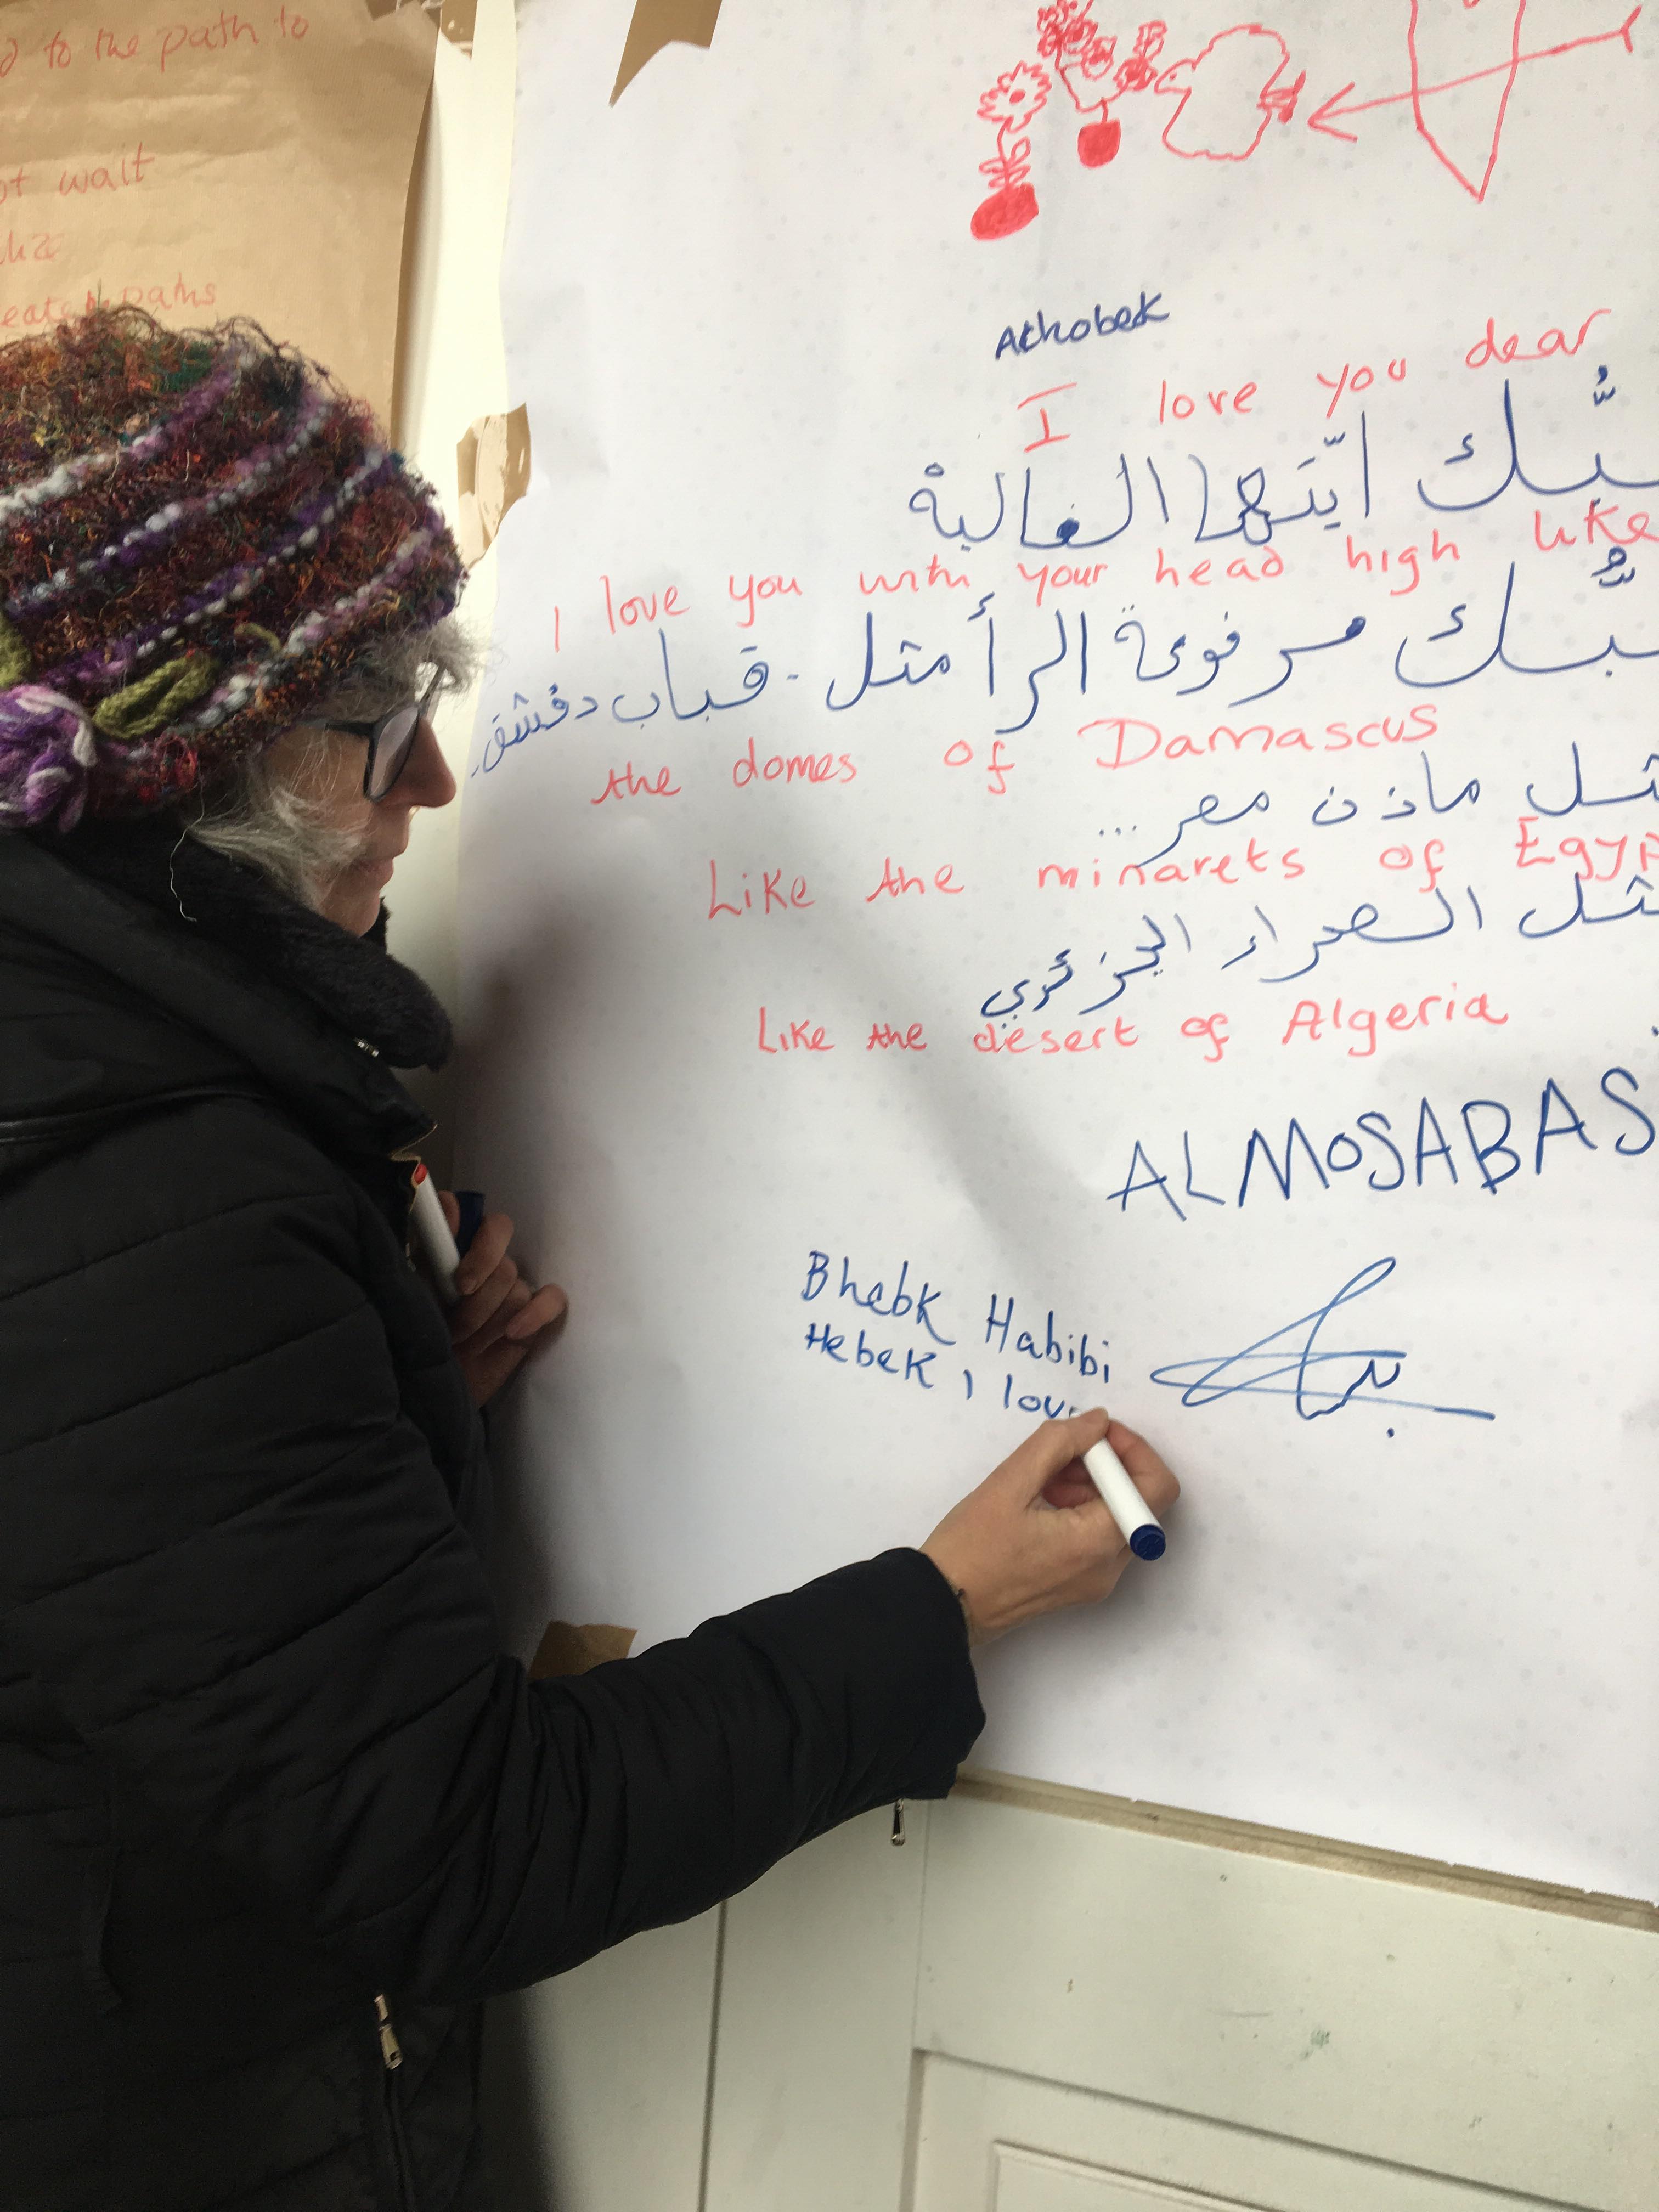 to the path to
wait
paths
Athobek
I love you dear
ـبّك ايّتها الغالية
I love you with your head high like
ـبّك مرفوعة الرأ مثل - قباب دمشق
the domes of Damascus
ـثل ماذن مصر ...
Like the minarets of Egyp
ـثل الصحراء الجزئري
Like the desert of Algeria
ALMOSABAS
Bhebk Habibi
Hebek I lov